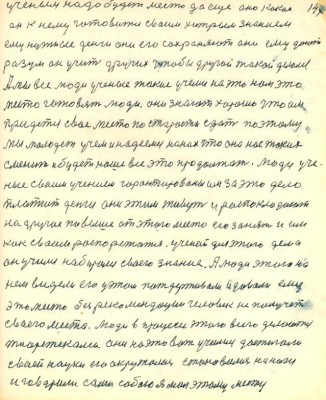 ученым надо будет место да еще оно какое
он к нему готовится своим хитрым знанием
ему нужные деньги он его сохраняют они ему дают
разум он учит других чтобы другой такой делал
А мы все люди ученые такие учены на это на это
место готовят люди, они знают хорошо что им
придется свое место по старости сдать поэтому
мы молодежь учен надеемся на них что она нас таких
сменит и будет наше все это продолжат. Люди уче-
ные своим учением гарантированы им за это дело
платит деньги они этим живут и располагают
на другое повыше от этого место его занять и им
как своим распоряжатся. ученый для этого дела
он учился набирался своего знания. А люди этого на
нем видели его у этом поддерживали и довали ему
это место без рекомендации человек не получает
своего места. Люди в процесе этого всего делают
они на это вот учились достигали
своей науки его окружали становился на ноги
и говорили сами собою я мол этому месту